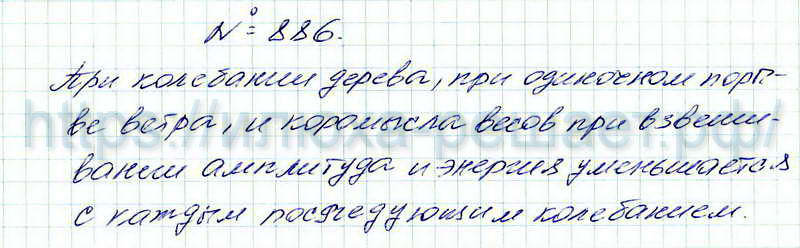 № 886.
При колебании дерева, при одиночном поры-
ве ветра, и коромысла весов при взвеши-
вании амплитуда и энергия уменьшается
с каждым последующим колебанием.